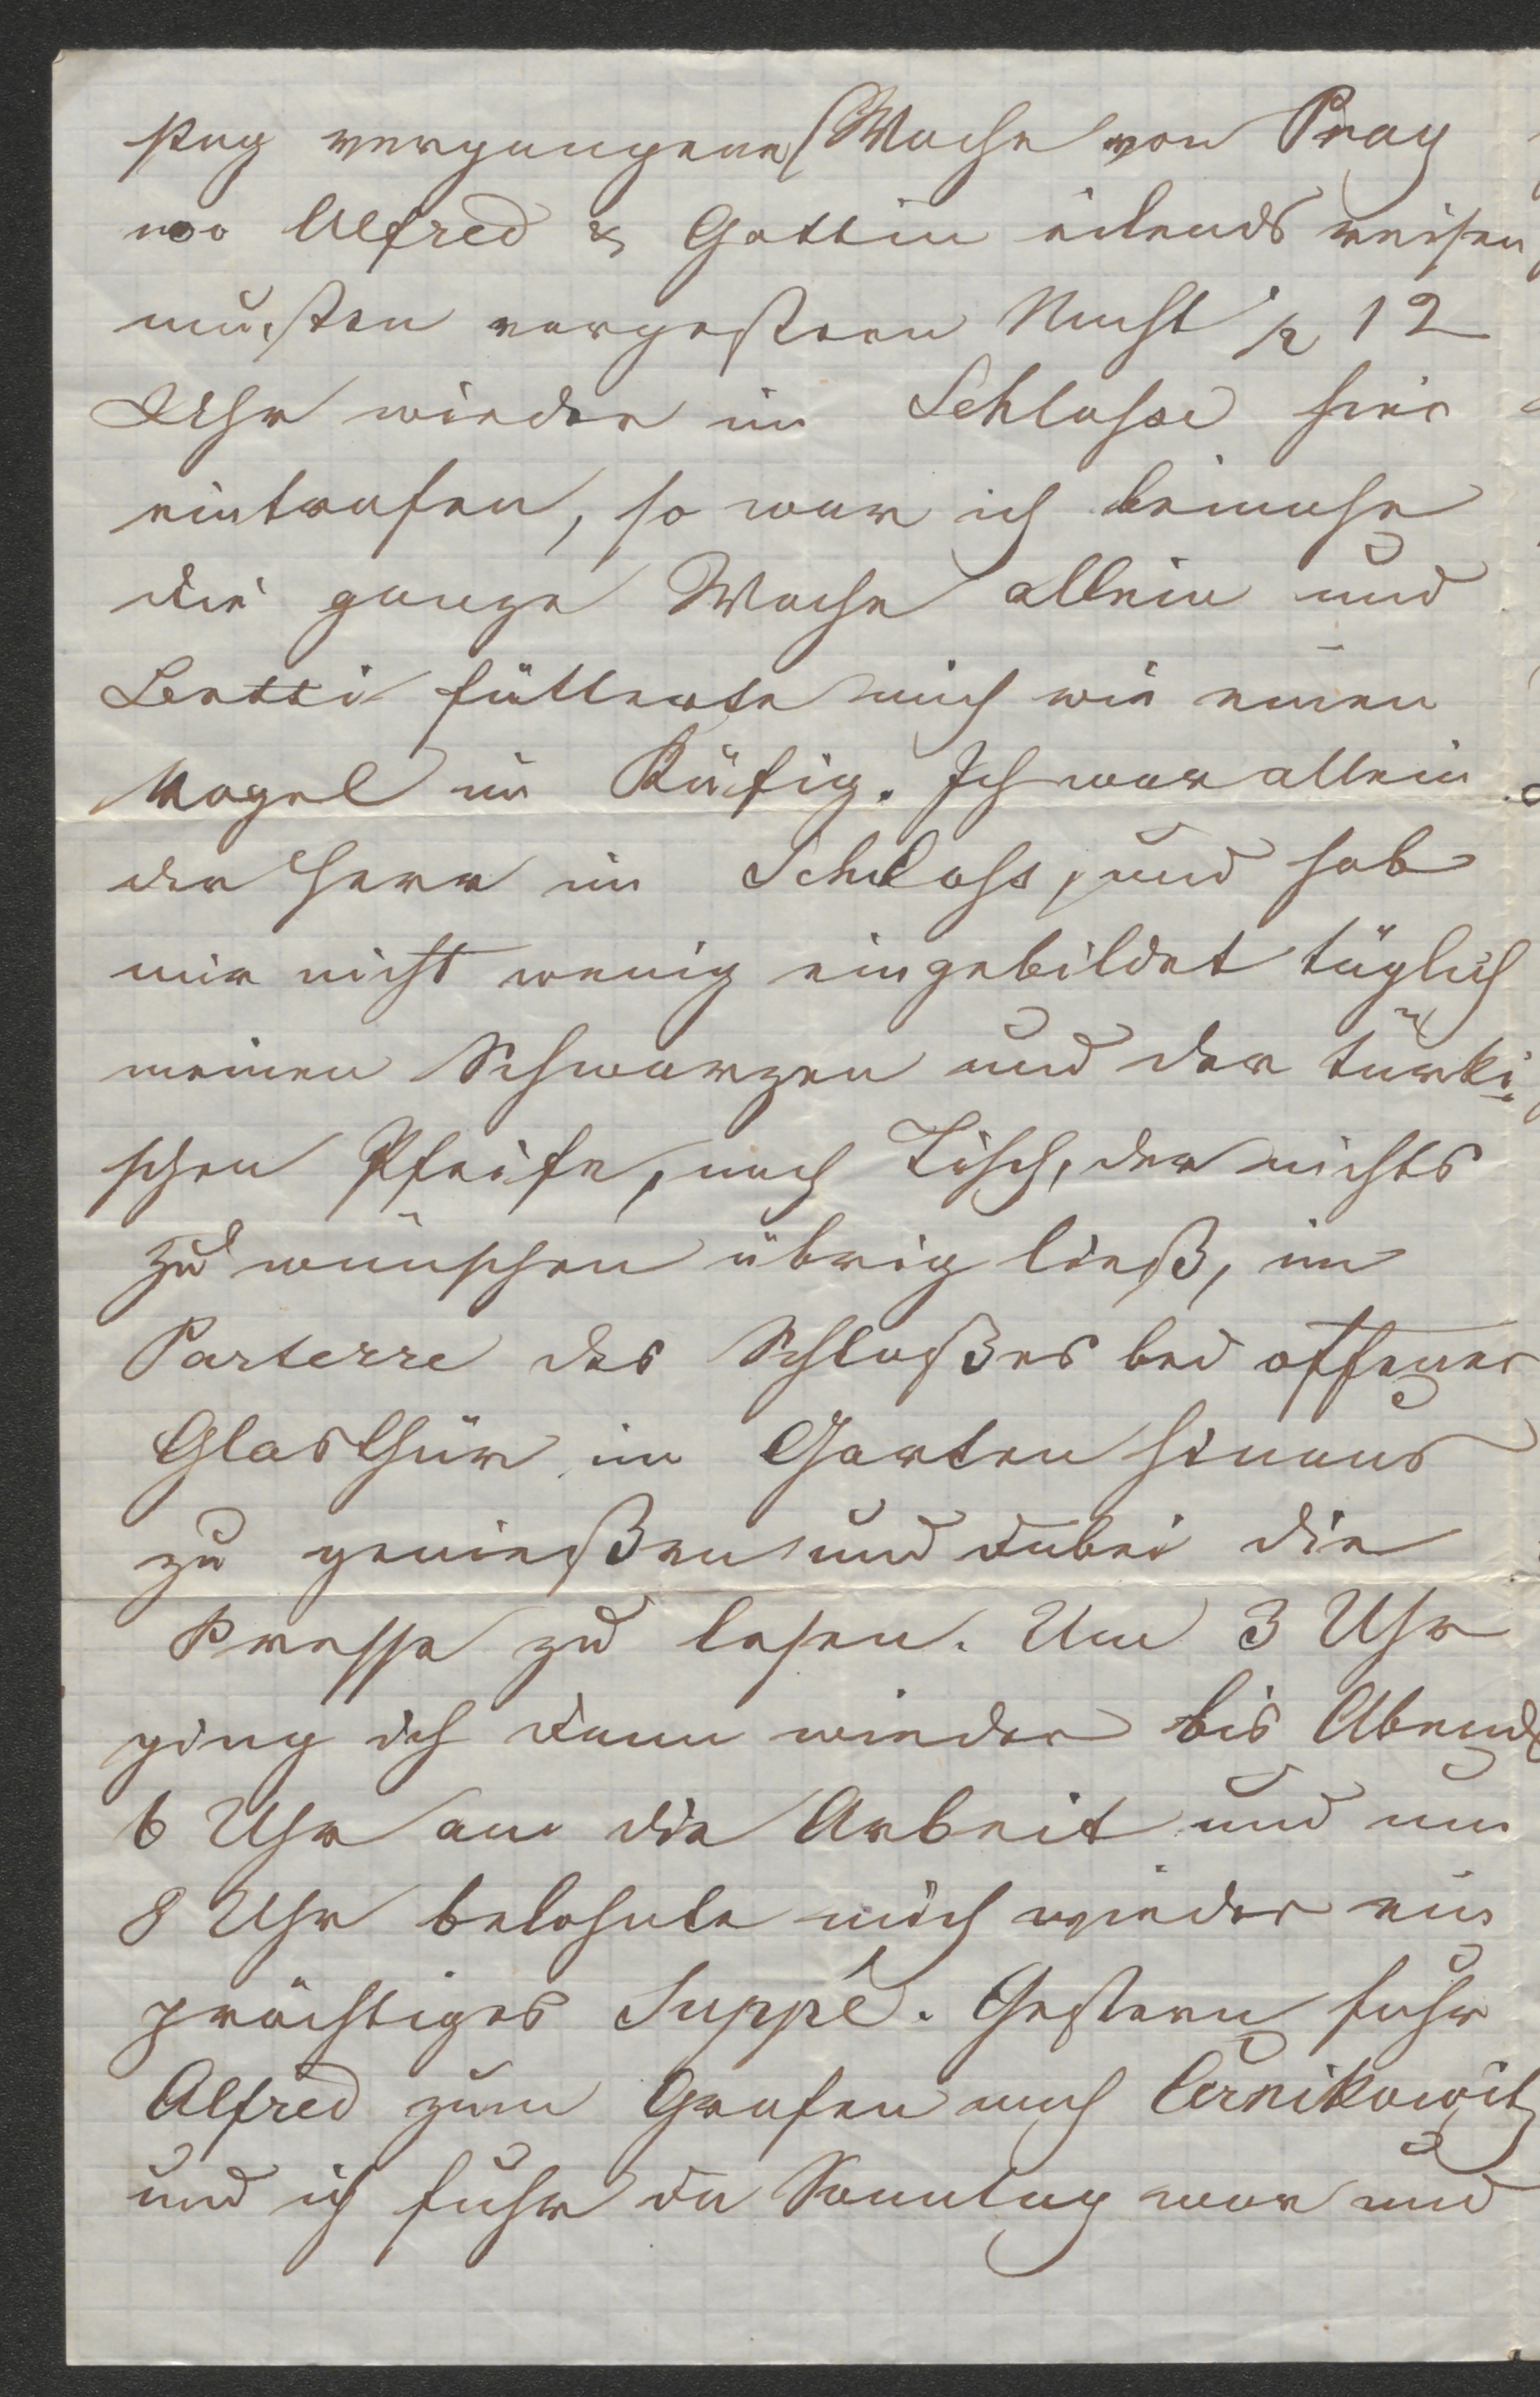 stag vergangene Woche von Prag
wo Alfred & Gattin eilends reisen
mußten vorgestern Nacht ½ 12
Uhr wieder im Schlosse hier
eintrafen, so war ich beinahe
die ganze Woche allein und
Betti fütterte mich wie einen
Vogel im Käfig. Ich war allein
der Herr im Schloss, und hab
mir nicht wenig eingebildet täglich
meinen Schwarzen und der türki-
schen Pfeife, nach Tisch, der nichts
zu wünschen übrig ließ, im
Parterre des Schloßes bei offener
Glasthür im Garten hinaus
zu genießen und dabei die
Presse zu lesen. Um 3 Uhr
ging ich dann wieder bis Abends
6 Uhr an die Arbeit und um
8 Uhr belohnte mich wieder ein
prächtiges Suppé. Gestern fuhr
Alfred zum Grafen nach Černikowitz
und ich fuhr da Sonntag war und